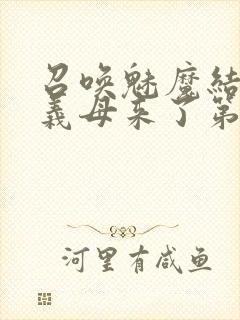 召唤魅魔结
义母来了第
河里有咸鱼